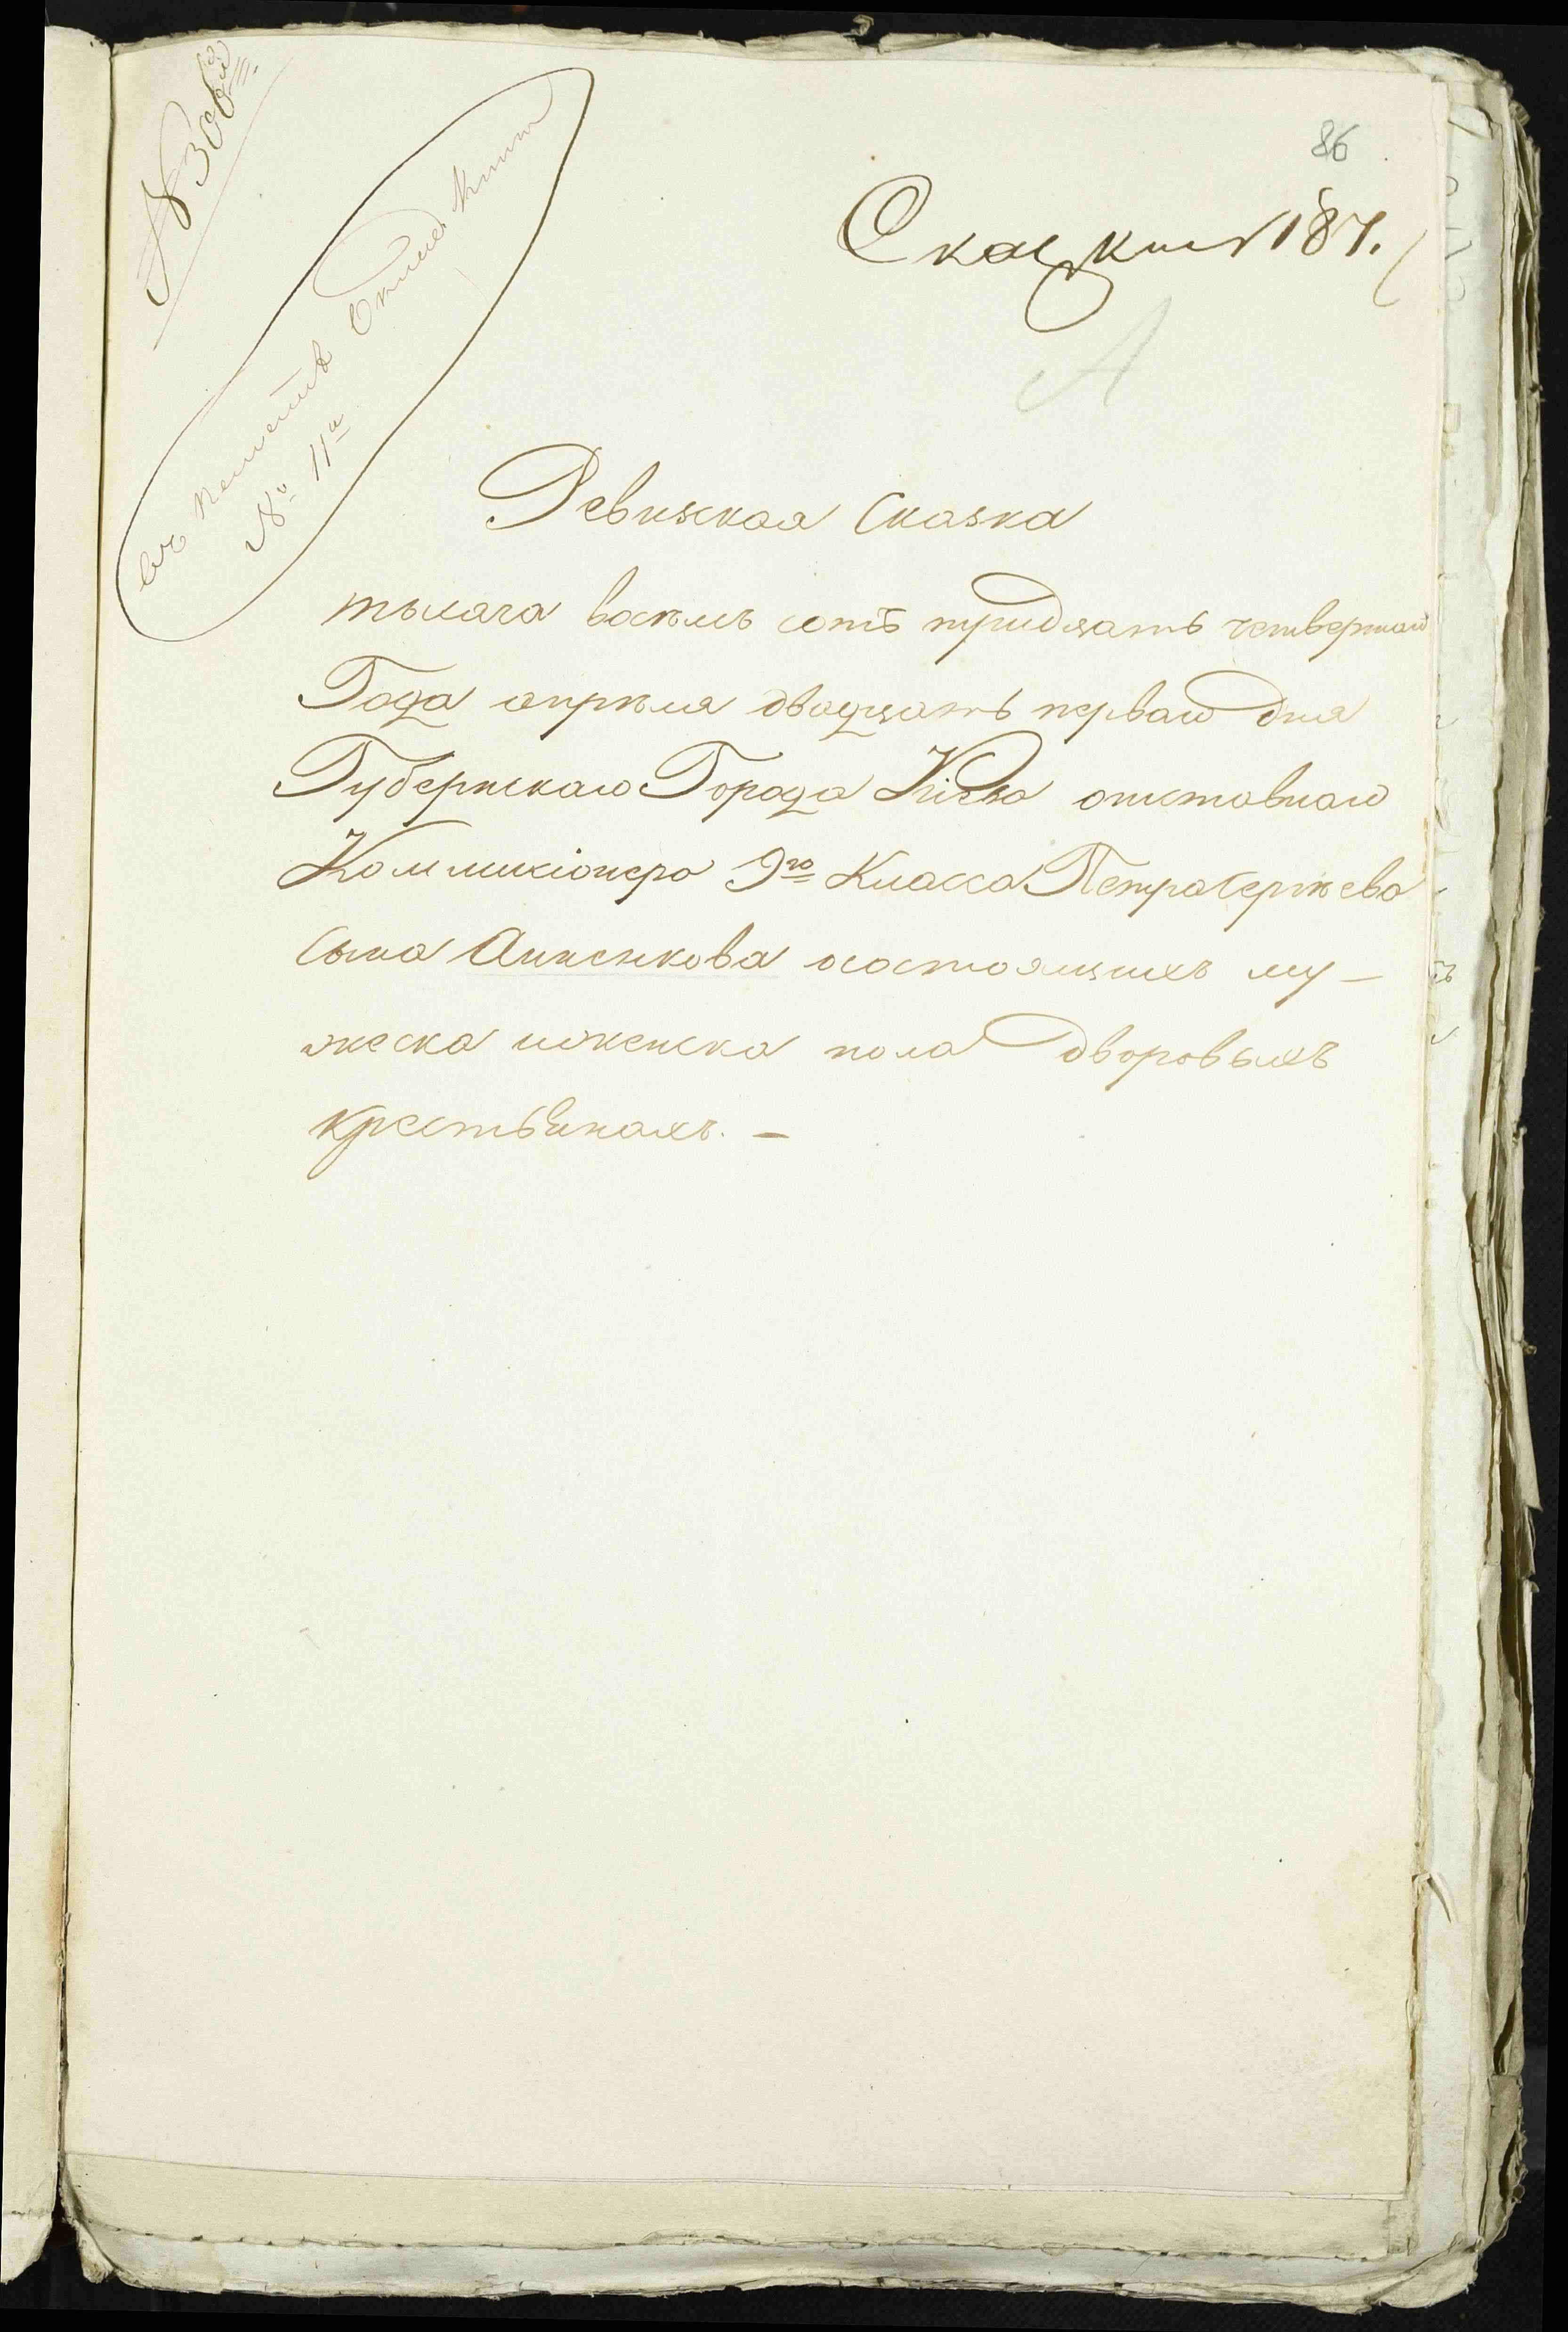 № 306й
86
Сказки 187.
А
№ 11й
Ревизская Сказка
тысяча восемь сотъ тридцать четвертаго
Года апреля двадцать перваго дня
Губернскаго Города Кіева отставнаго
Коммисіонера 9го Класса Петра Сергѣева
сына Анненкова осостоящихъ му-
жеска иженска пола дворовыхъ
крестьянахъ. –